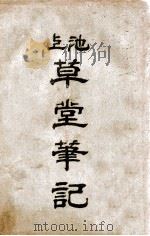 池上草堂筆記
mtoou.info